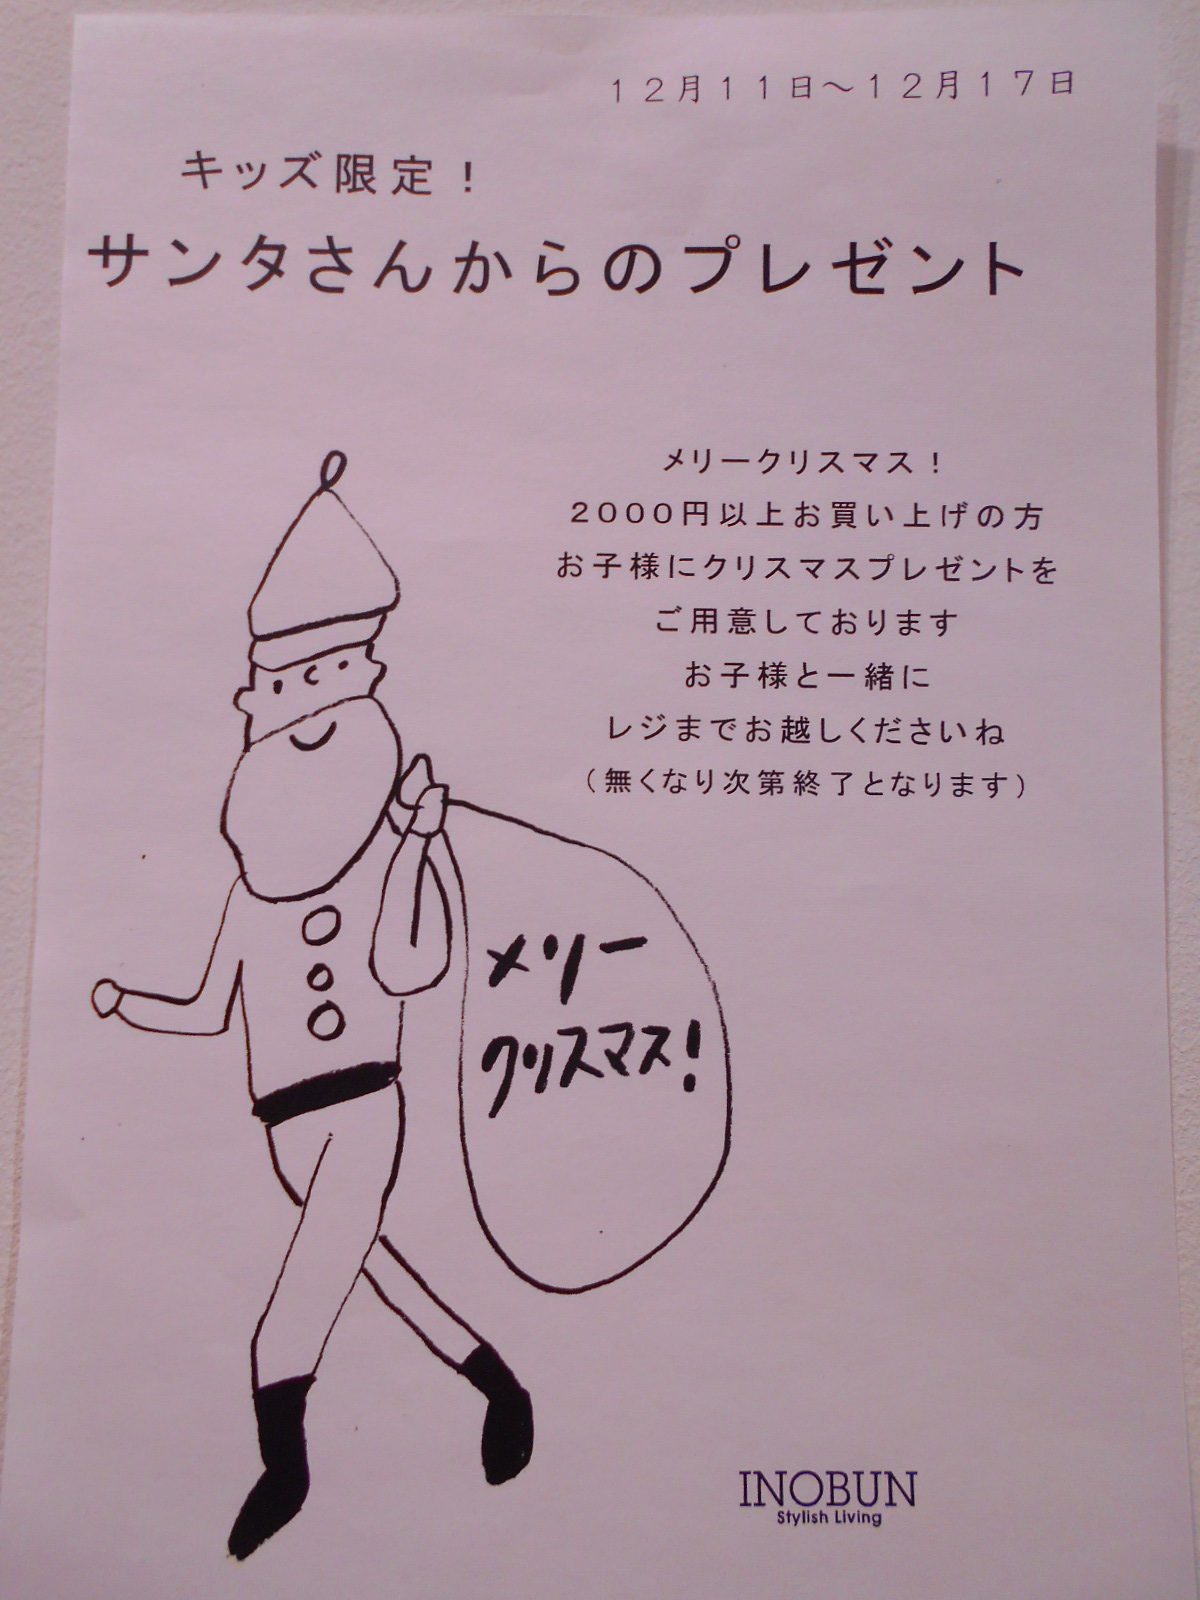 １２月１１日～１２月１７日
キッズ限定！
サンタさんからのプレゼント
メリークリスマス！
２０００円以上お買い上げの方
お子様にクリスマスプレゼントを
ご用意しております
お子様と一緒に
レジまでお越しくださいね
（無くなり次第終了となります）
メリー
クリスマス！
INOBUN
Stylish Living